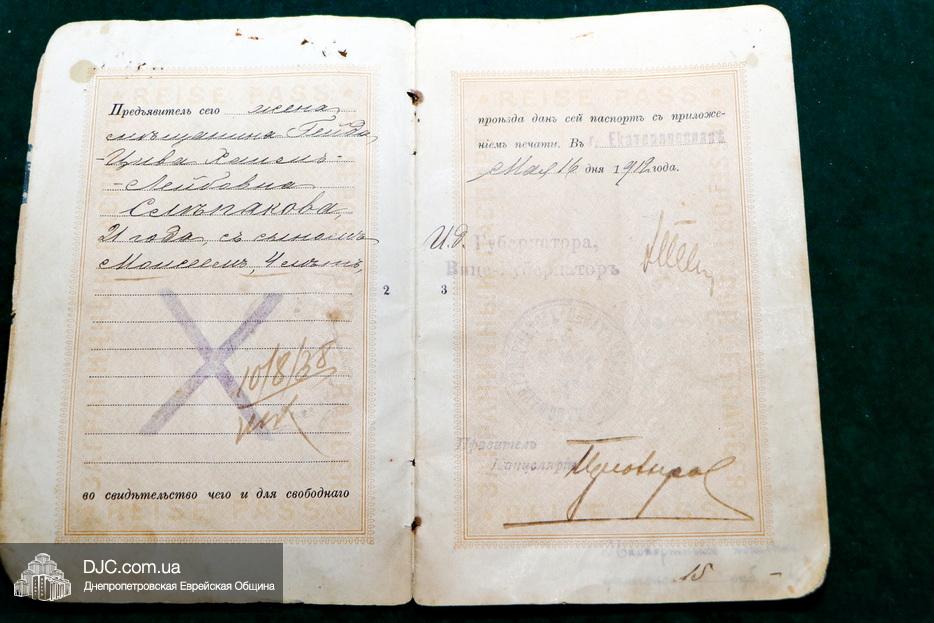 REISE PASS
Предъявитель сего жена
мѣщанина Гейда,
-Цива Хашелъ-
-Лейбовна
Слѣпакова,
21 года, съ сыномъ
Моисеемъ, 4 лѣтъ,
2
10/8/38
во свидѣтельство чего и для свободнаго
REISE PASS
REISE PASS
проѣзда данъ сей паспортъ съ приложе-
ніемъ печати. Въ г. Екатеринославѣ
Мая 16 дня 1912 года.
И.д. Губернатора,
Вице-Губернаторъ
3
Правитель
Канцеляріи
REISE PASS
15
DJC.com.ua
Днепропетровская Еврейская Община